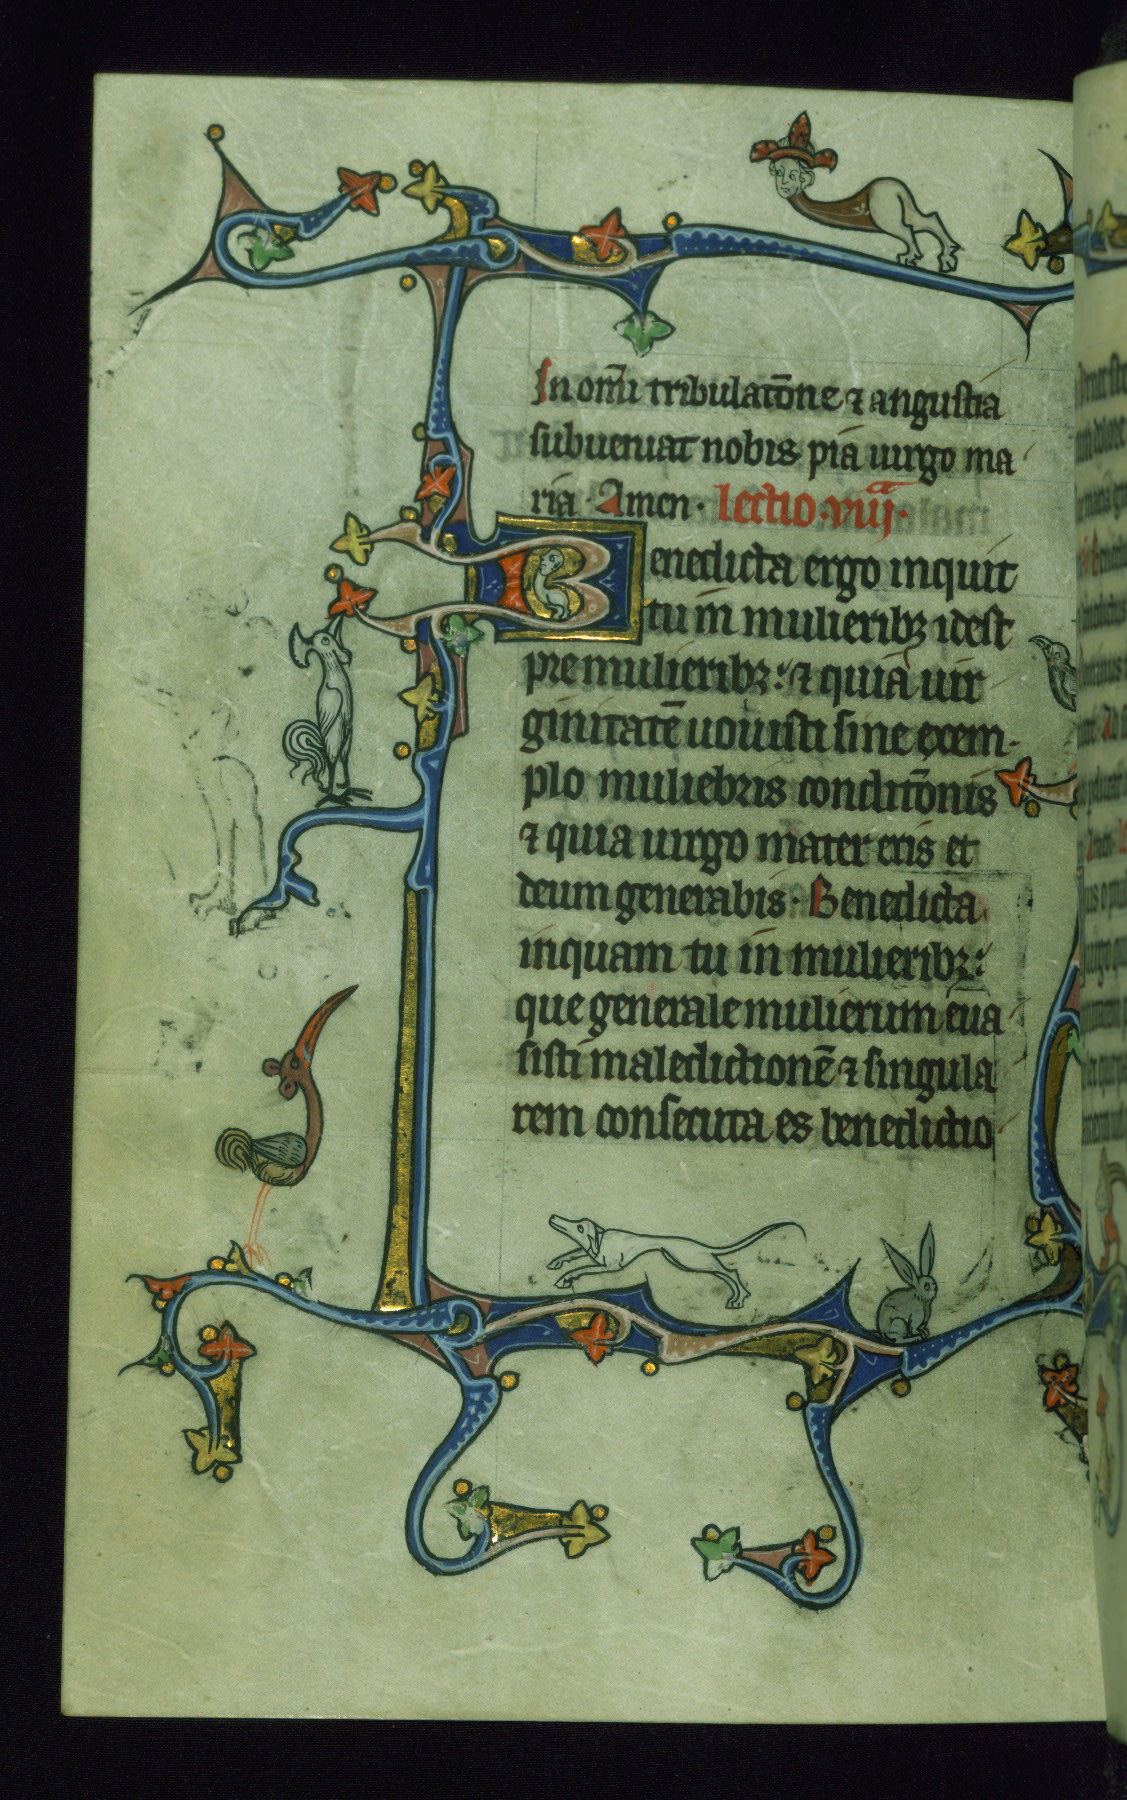 In om̄i tribulatōne ⁊ angustia
subueniat nobis pia uirgo ma
ria · Amen · lectio · viijᵃ ·
Benedicta ergo inquit
tu in mulieribꝫ idest
pre mulieribꝫ : ⁊ quia uir
ginitatē uouisti sine exem-
plo muliebris conditōnis
⁊ quia uirgo mater eris et
deum generabis · Benedicta
inquam tu in mulieribꝫ :
que generale mulierum eua
sisti maledictionē ⁊ singula
rem consecuta es benedictio